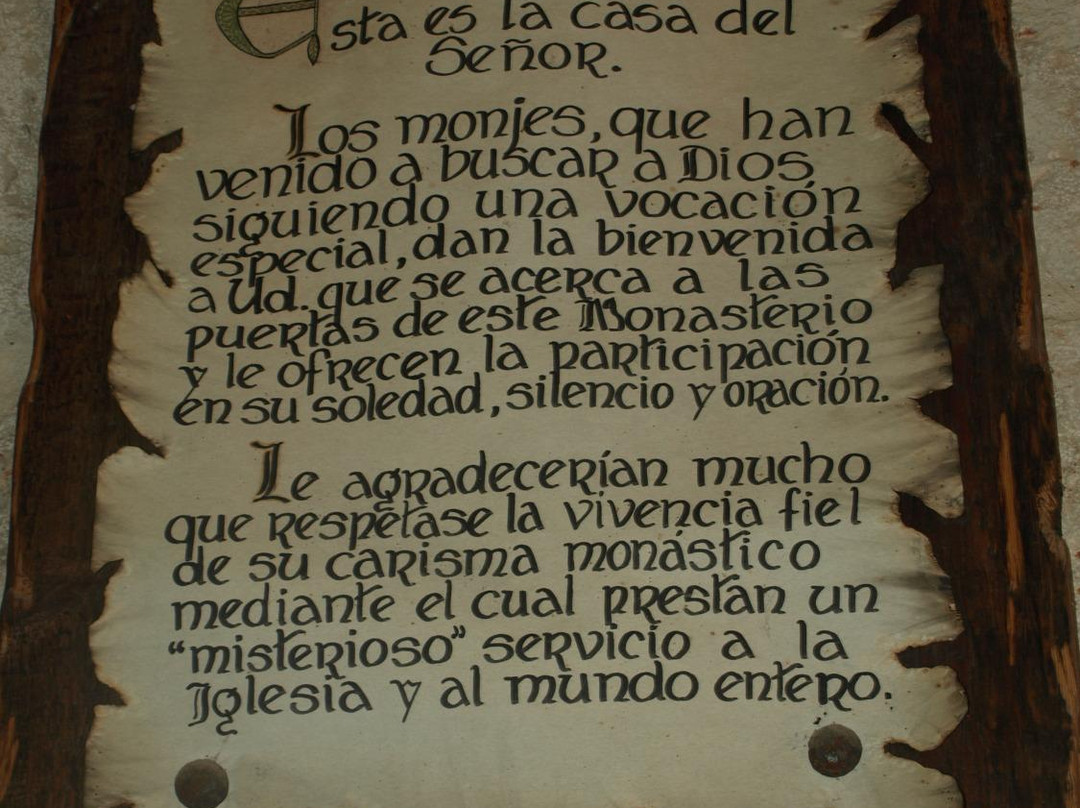 Esta es la casa del
Señor.
Los monjes, que han
venido a buscar a Dios
siguiendo una vocación
especial, dan la bienvenida
a Ud. que se acerca a las
puertas de este Monasterio
y le ofrecen la participación
en su soledad, silencio y oración.
Le agradecerían mucho
que respetase la vivencia fiel
de su carisma monástico
mediante el cual prestan un
“misterioso” servicio a la
Iglesia y al mundo entero.